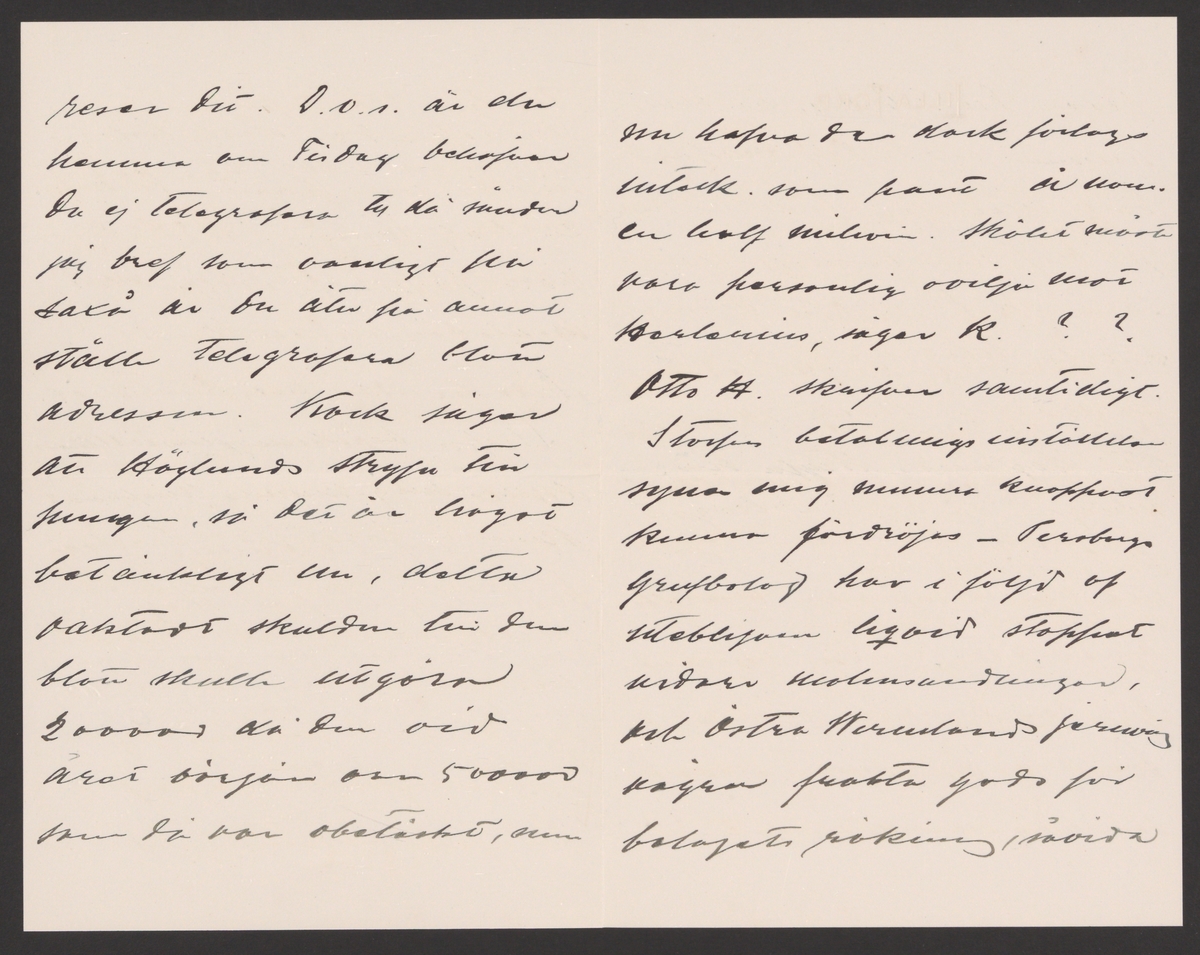 reser dit. D.v.s. är du
hemma om Tisdag behöfver
Du ej telegrafera ty då sänder
jag bref som vanligt från
Saxå är du åter på annat
ställe telegrafera blott
adressen. Kock säger
att Höglunds strypa till
pungen, så det är högst
betänkligt nu, detta
oaktadt skulden till dem
blott skulle utgöra
200000 då den vid
året början om 500000
som då var obetäckt, men
nu hafva de dock förlags
inteck. som pant å nom.
en half million. Skälet måste
vara personlig ovilja mot
Herlenius, säger K. ? ?
Otto H. skrifver samtidigt.
Storfors betalningsinställelse
synes mig numera knappast
kunna fördröjas – Persbergs
Grufbolag har i följd af
utebliven liqvid stoppat
vidare malmsändningar,
och Östra Wermlands järnväg
vägrar frakta gods för
bolagets räkning, såvida